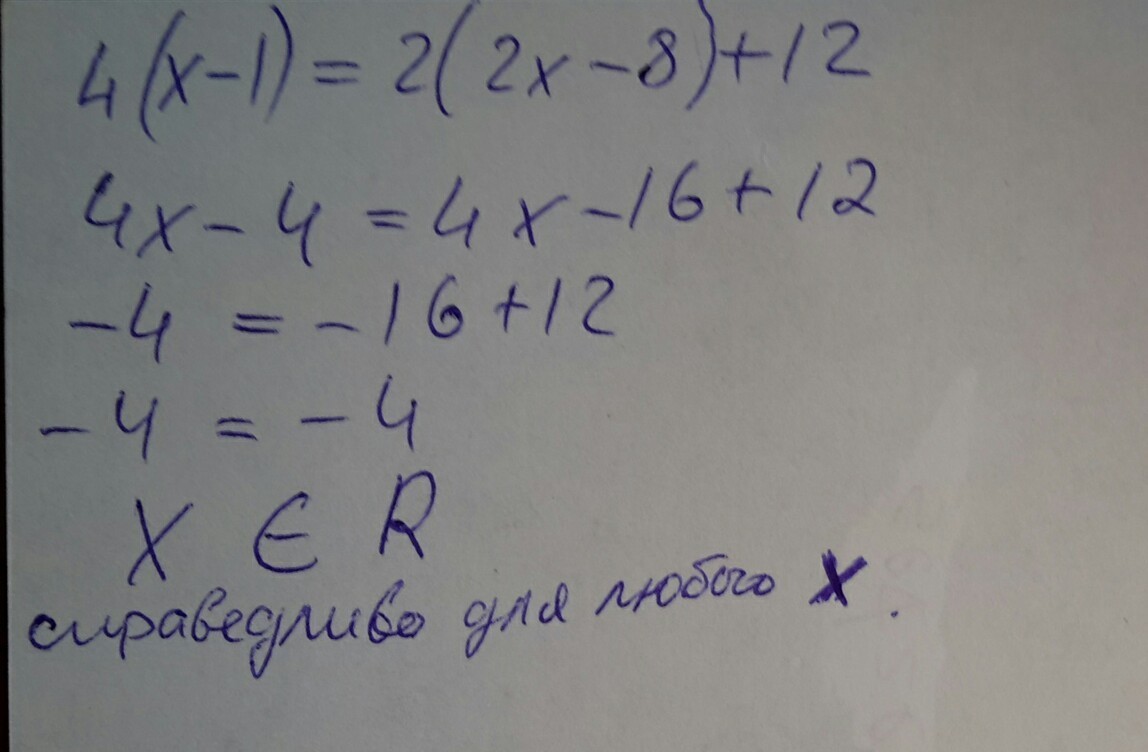 4(x-1)=2(2x-8)+12
4x-4=4x-16+12
-4=-16+12
-4=-4
X ∈ R
справедливо для любого X.